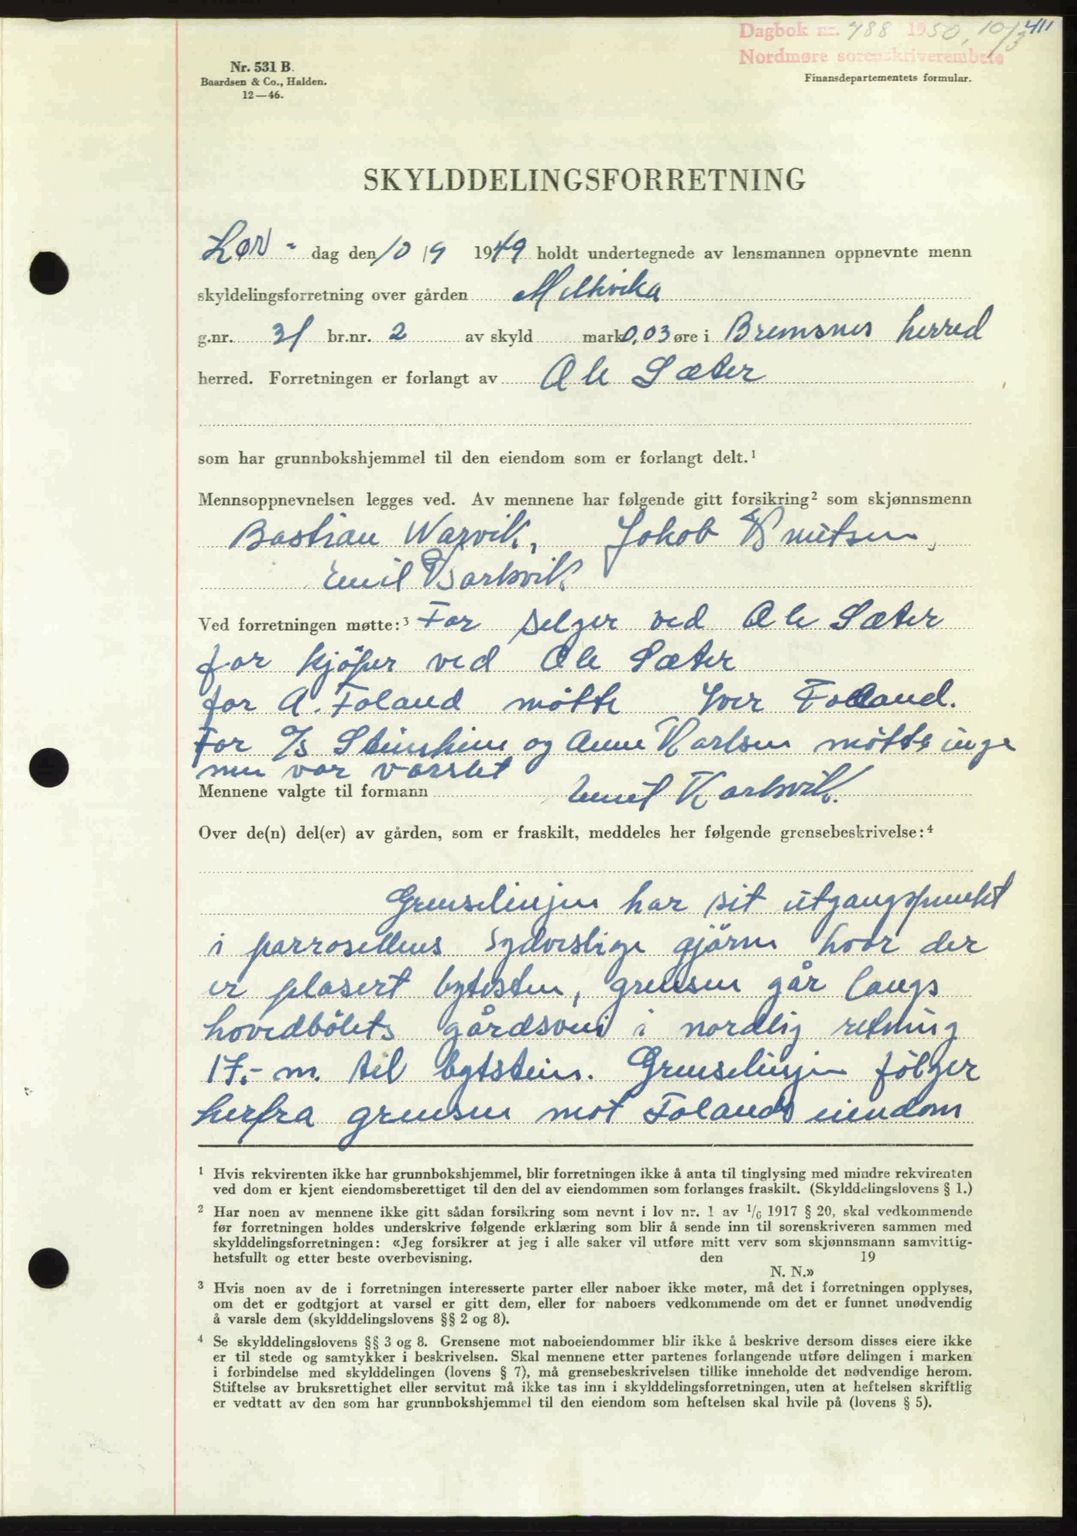 Dagbok nr. 788 1950, 10/3 411
Nordmøre sorenskriverembete
Nr. 531 B.
Baardsen & Co., Halden.
12—46.
Finansdepartementets formular.
SKYLDDELINGSFORRETNING
Lør - dag den 10/9 1949 holdt undertegnede av lensmannen oppnevnte menn
skyldelingsforretning over gården
g.nr. 31 br.nr. 2 av skyld mark 0,03 øre i Bremsnes herred
herred. Forretningen er forlangt av Ole Sæter
som har grunnbokshjemmel til den eiendom som er forlangt delt.¹
Mennsoppnevnelsen legges ved. Av mennene har følgende gitt forsikring² som skjønnsmenn
Bastian Warvik, Jakob Knutsen,
Emil Karlsvik
Ved forretningen møtte:³ For selger ved Ole Sæter
for kjöper ved Ole Sæter
for A. Foland mötte Iver Foland.
For o/s Steinheim og Anne Karlsen mötte inge
men var varslet
Mennene valgte til formann Emil Karlsvik.
Over de(n) del(er) av gården, som er fraskilt, meddeles her følgende grensebeskrivelse:⁴
Grenselinjen har sit utgangspunkt
i parrosellens sydvestlige gjörne hvor der
er plasert bytesten, grensen går langs
hovedbölets gårdsvei i nordlig retning
17.- m. til bytstein. Grenselinjen fölger
herfra grensen mot Folands eiendom
¹ Hvis rekvirenten ikke har grunnbokshjemmel, blir forretningen ikke å anta til tinglysing med mindre rekvirenten
ved dom er kjent eiendomsberettiget til den del av eiendommen som forlanges fraskilt. (Skylddelingslovens § 1.)
² Har noen av mennene ikke gitt sådan forsikring som nevnt i lov nr. 1 av 1/6 1917 § 20, skal vedkommende
før forretningen holdes underskrive følgende erklæring som blir å sende inn til sorenskriveren sammen med
skylddelingsforretningen: «Jeg forsikrer at jeg i alle saker vil utføre mitt verv som skjønnsmann samvittig-
hetsfullt og etter beste overbevisning. den 19
N. N.»
³ Hvis noen av de i forretningen interesserte parter eller naboer ikke møter, må det i forretningen opplyses,
om det er godtgjort at varsel er gitt dem, eller for naboers vedkommende om det er funnet unødvendig
å varsle dem (skylddelingslovens §§ 2 og 8).
⁴ Se skylddelingslovens §§ 3 og 8. Grensene mot naboeiendommer blir ikke å beskrive dersom disses eiere ikke
er til stede og samtykker i beskrivelsen. Skal mennene etter partenes forlangende utføre delingen i marken
i forbindelse med skylddelingen (lovens § 7), må grensebeskrivelsen tillike inneholde det nødvendige herom.
Stiftelse av bruksrettighet eller servitut må ikke tas inn i skylddelingsforretningen, uten at heftelsen skriftlig
er vedtatt av den som har grunnbokshjemmel til den eiendom som heftelsen skal hvile på (lovens § 5).